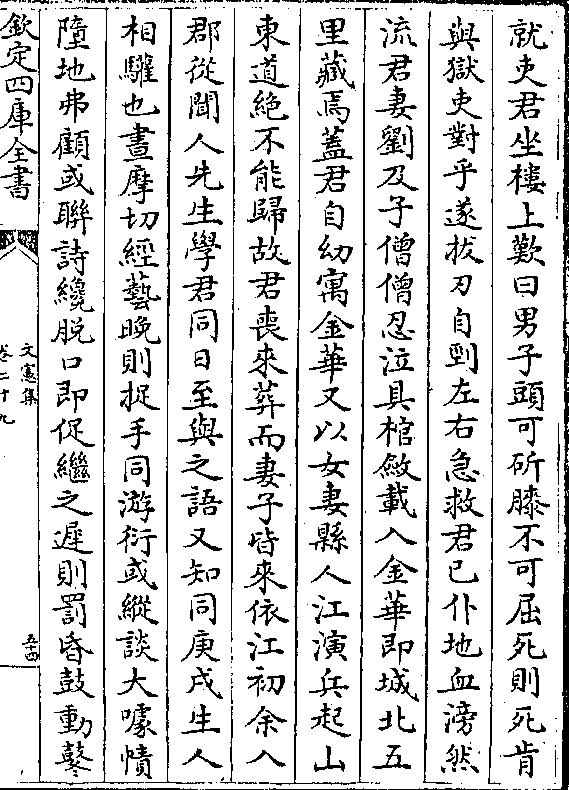 就吏君坐樓上歎曰男子頭可斫膝不可屈死則死肯
與獄吏對乎遂拔刃自剄左右急救君已仆地血滂然
流君妻劉及子僧僧忍泣具棺斂載入金華即城北五
里藏焉蓋君自幼寓金華又以女妻縣人江演兵起山
東道絶不能歸故君喪來葬而妻子皆來依江初余入
郡從聞人先生學君同日至與之語又知同庚戌生人
相驩也晝摩切經藝晚則捉手同游衍或縱談大噱幘
墮地弗顧或聯詩纔脱口即促繼之遲則罰昏鼓動鼕
欽定四庫全書
文憲集
卷二十九
五十四